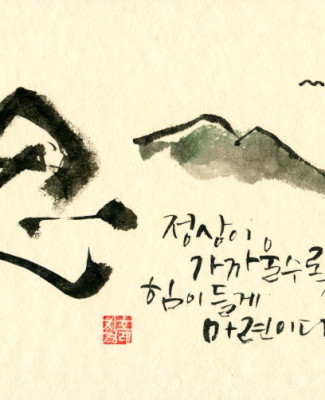 정상이
가까울수록
힘이 들게
마련이다